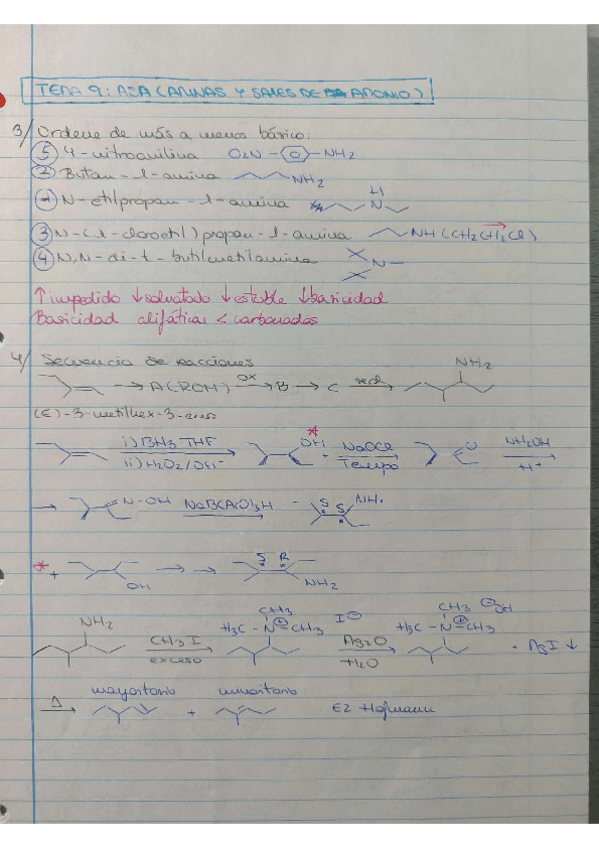 TEMA 9: A3A (AMINAS Y SALES DE AMONIO)
3/ Ordene de más a menos básico:
5 4-nitroanilina O2N NH2
2 Butan-1-amina NH2
1 N-etilpropan-1-amina H N
3 N-(2-cloroetil)propan-1-amina NH(CH2CH2Cl)
4 N,N-di-t-butilmetilamina N
↑impedido ↓solvatado ↓estable ↓basicidad
Basicidad alifáticas < carbonadas
4/ Secuencia de reacciones NH2
→ A(ROH) ox → B → C →
(E)-3-metilhex-3-eno
i) BH3 THF OH * NaOCl O NH2OH
ii) H2O2/OH- + Tempo H+
→ N-OH S S
* + OH → → S R NH2
NH2 CH3I exceso CH3 H3C-N⊕-CH3 I⊖ Ag2O H2O CH3 H3C-N⊕-CH3 ⊖OH + AgI ↓
Δ → mayoritario + minoritario E2 Hofmann